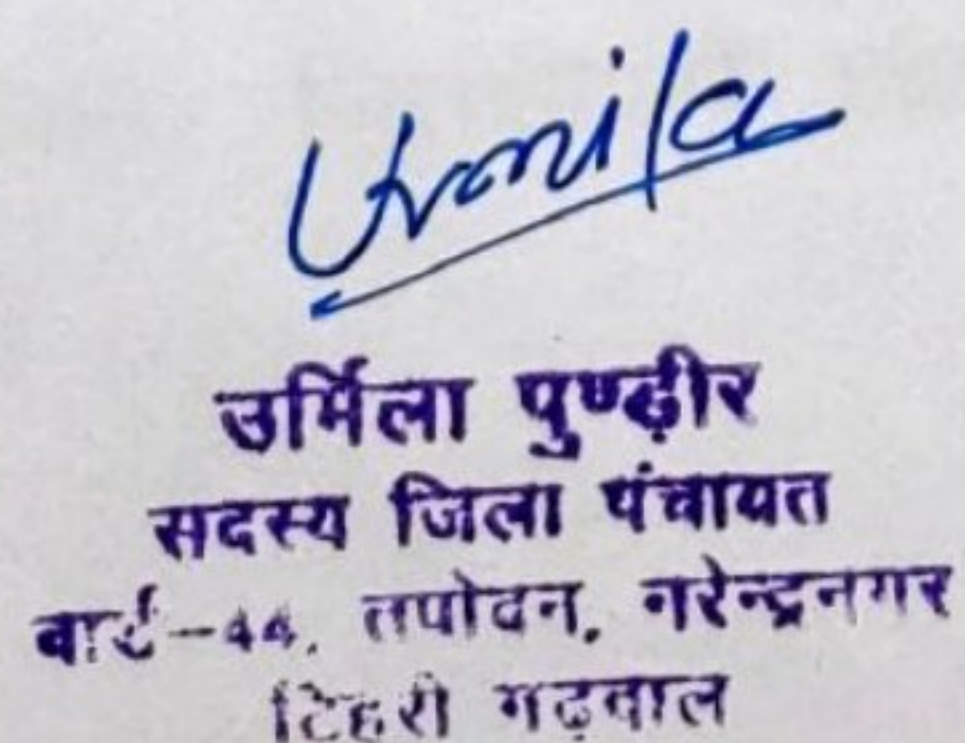 Urmila
उर्मिला पुण्ढ़ीर
सदस्य जिला पंचायत
वार्ड-44, तपोवन, नरेन्द्रनगर
टिहरी गढ़वाल